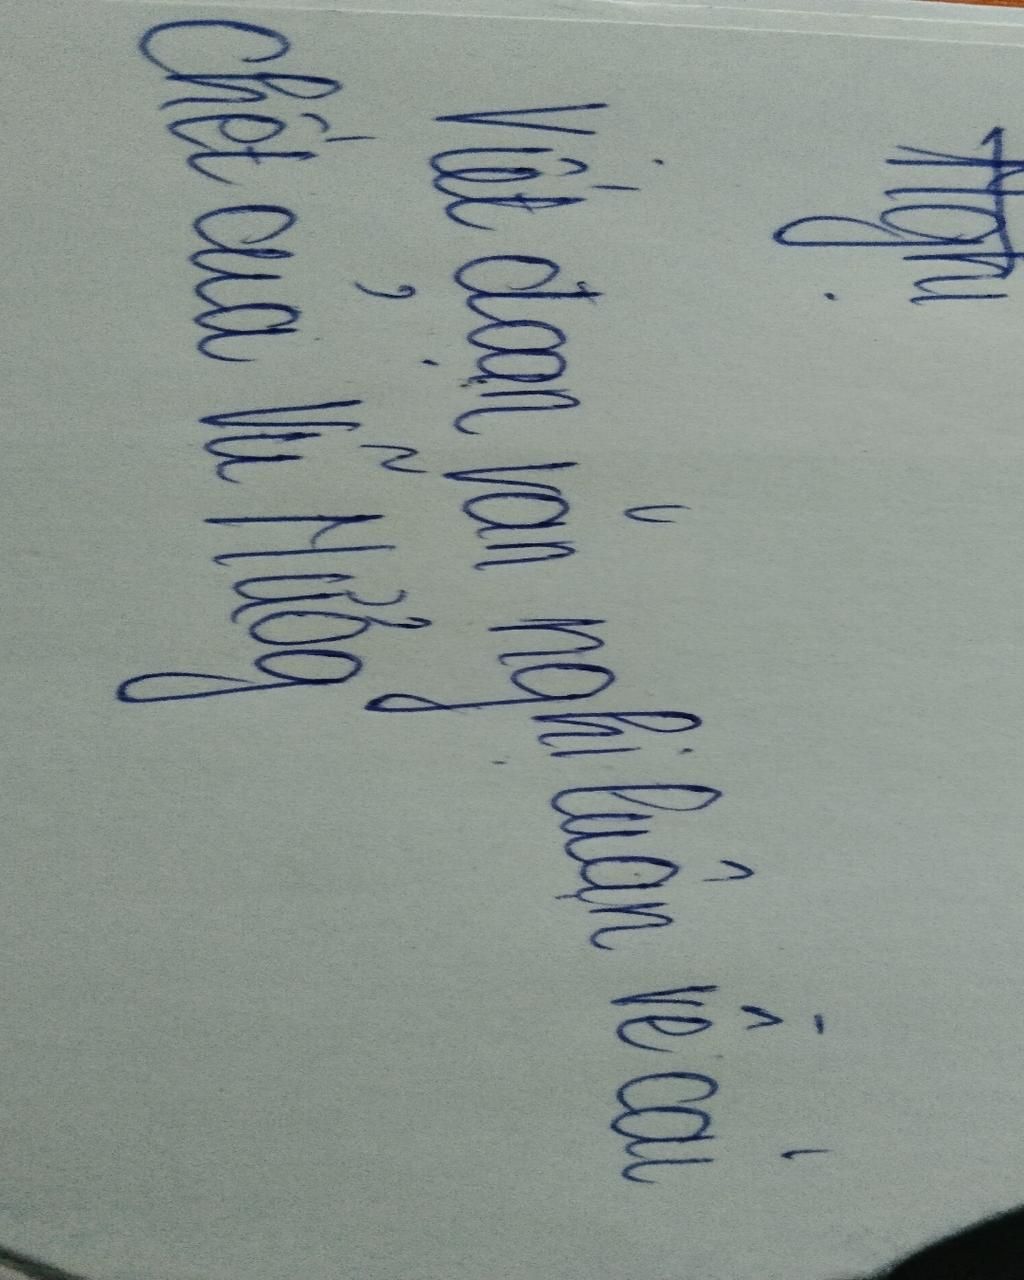 Nghị
Viết đoạn văn nghị luận về cái
Chết của Vũ Nươg